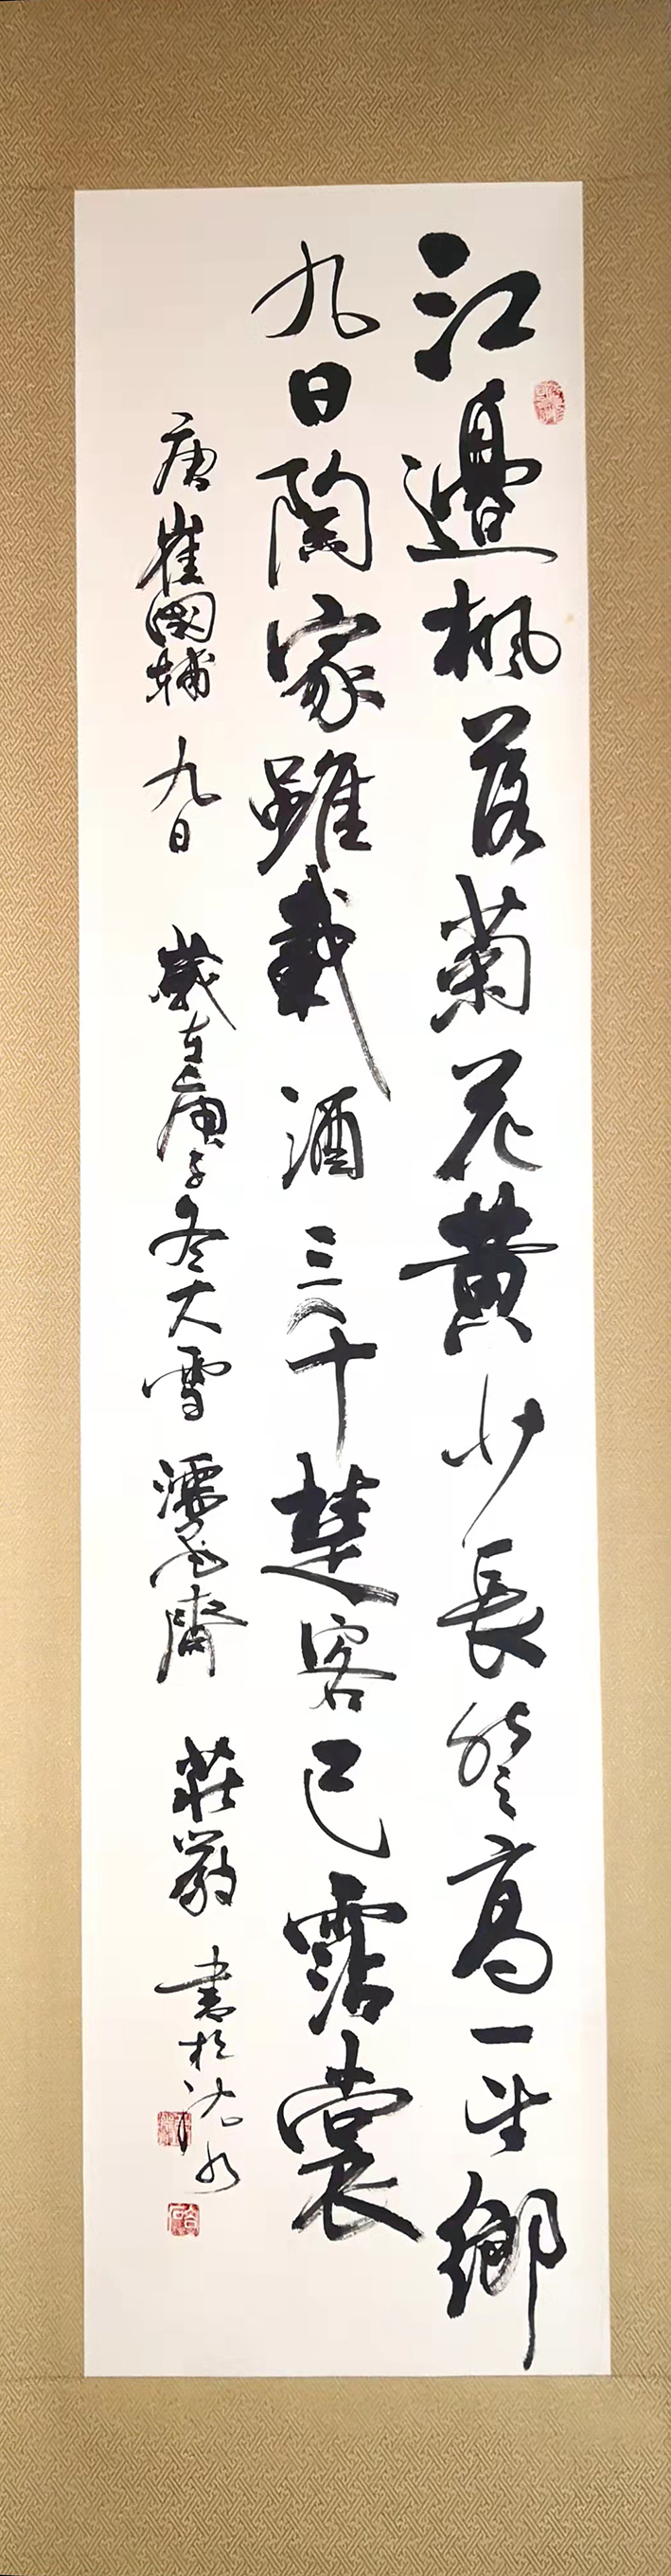 江邊楓落菊花黃少長登高一望鄉
九日陶家雖載酒三年楚客已霑裳
唐崔國輔 九日 歲在庚子冬大雪 濡墨齋 莊嚴 書於沈水